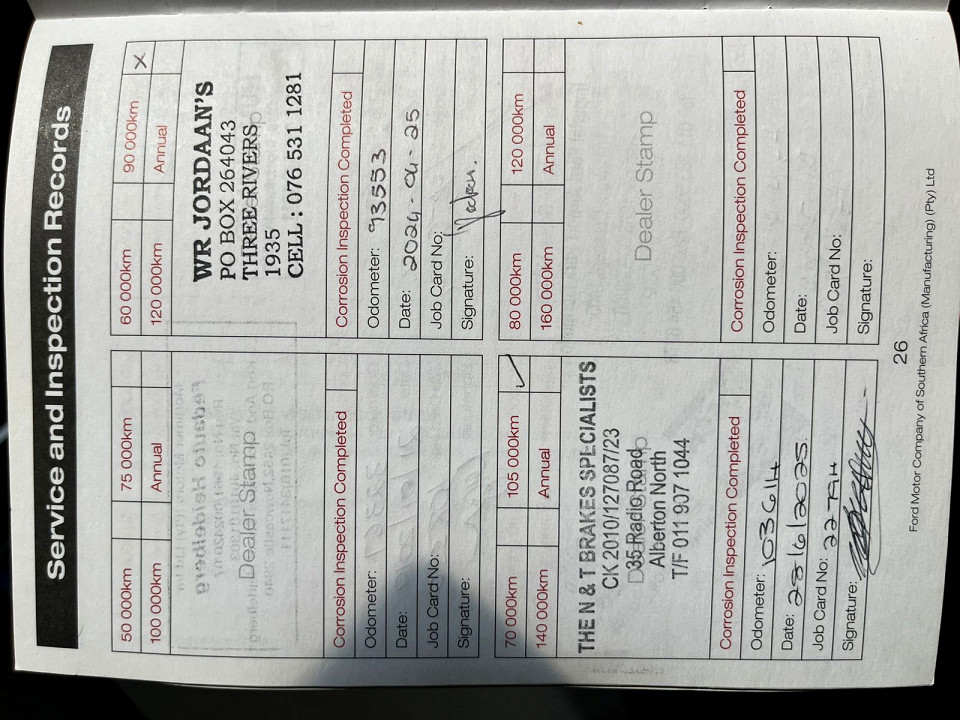 Service and Inspection Records
50 000km
75 000km
100 000km
Annual
Dealer Stamp
Corrosion Inspection Completed
Odometer:
Date:
Job Card No:
Signature:
60 000km
90 000km X
120 000km
Annual
WR JORDAAN'S
PO BOX 264043
THREE RIVERS
1935
CELL : 076 531 1281
Corrosion Inspection Completed
Odometer: 93553
Date: 2024-04-25
Job Card No:
Signature:
70 000km
105 000km ✓
140 000km
Annual
THE N & T BRAKES SPECIALISTS
CK 2010/127087/23
35 Radio Road
Alberton North
T/F 011 907 1044
Corrosion Inspection Completed
Odometer: 103614
Date: 28/6/2025
Job Card No:
Signature:
80 000km
120 000km
160 000km
Annual
Dealer Stamp
Corrosion Inspection Completed
Odometer:
Date:
Job Card No:
Signature:
26
Ford Motor Company of Southern Africa (Manufacturing) (Pty) Ltd